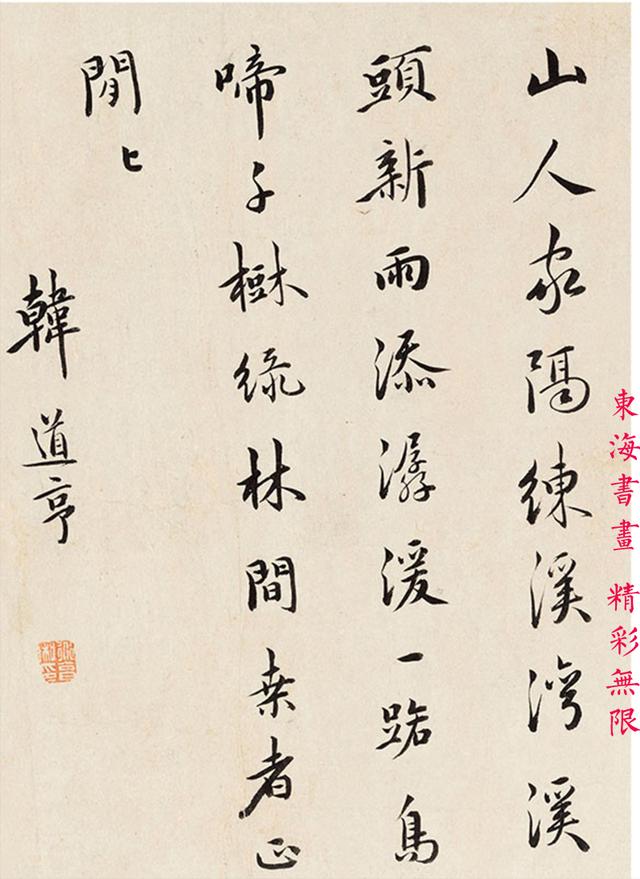 山人家隔練溪灣溪
頭新雨添潺湲一路鳥
啼千樹綠林間桒者正
閒〻
韓道亨
東海書畫 精彩無限